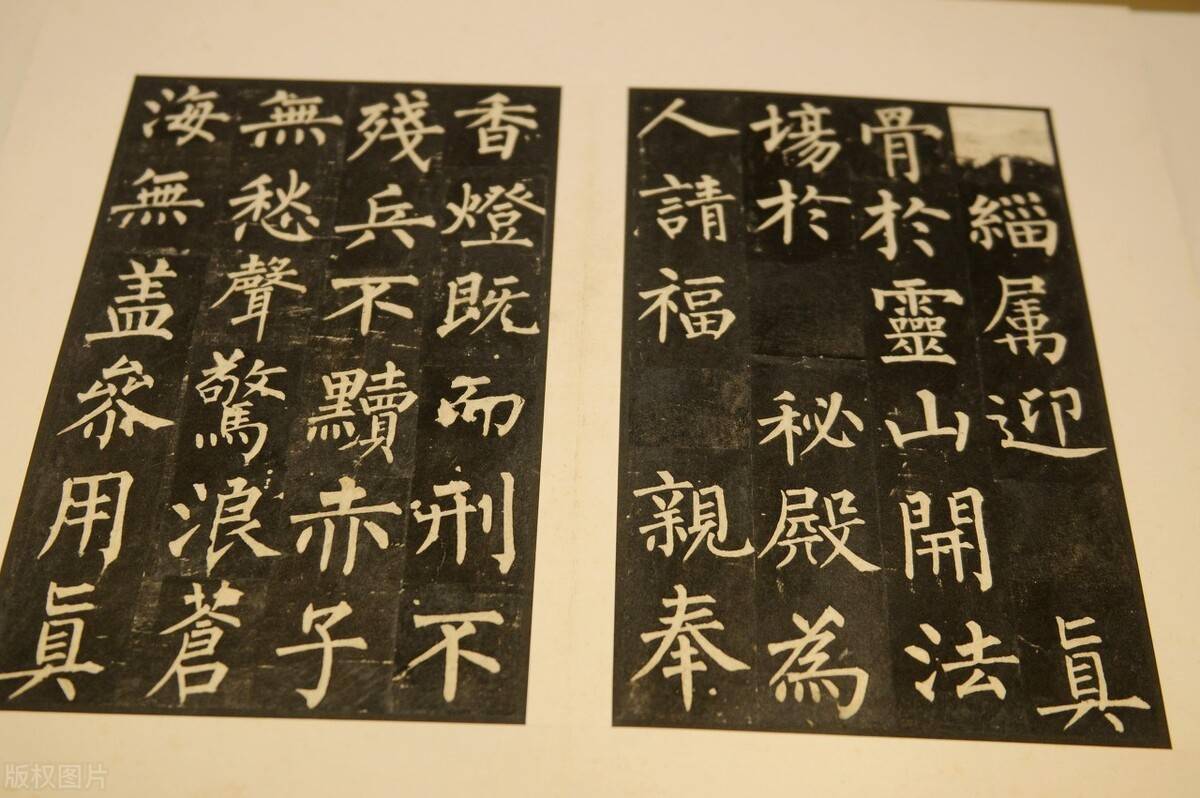 緇属迎真
骨於靈山開法
場於秘殿為
人請福親奉
香燈既而刑不
殘兵不黷赤子
無愁聲驚浪蒼
海無盖參用真
版权图片